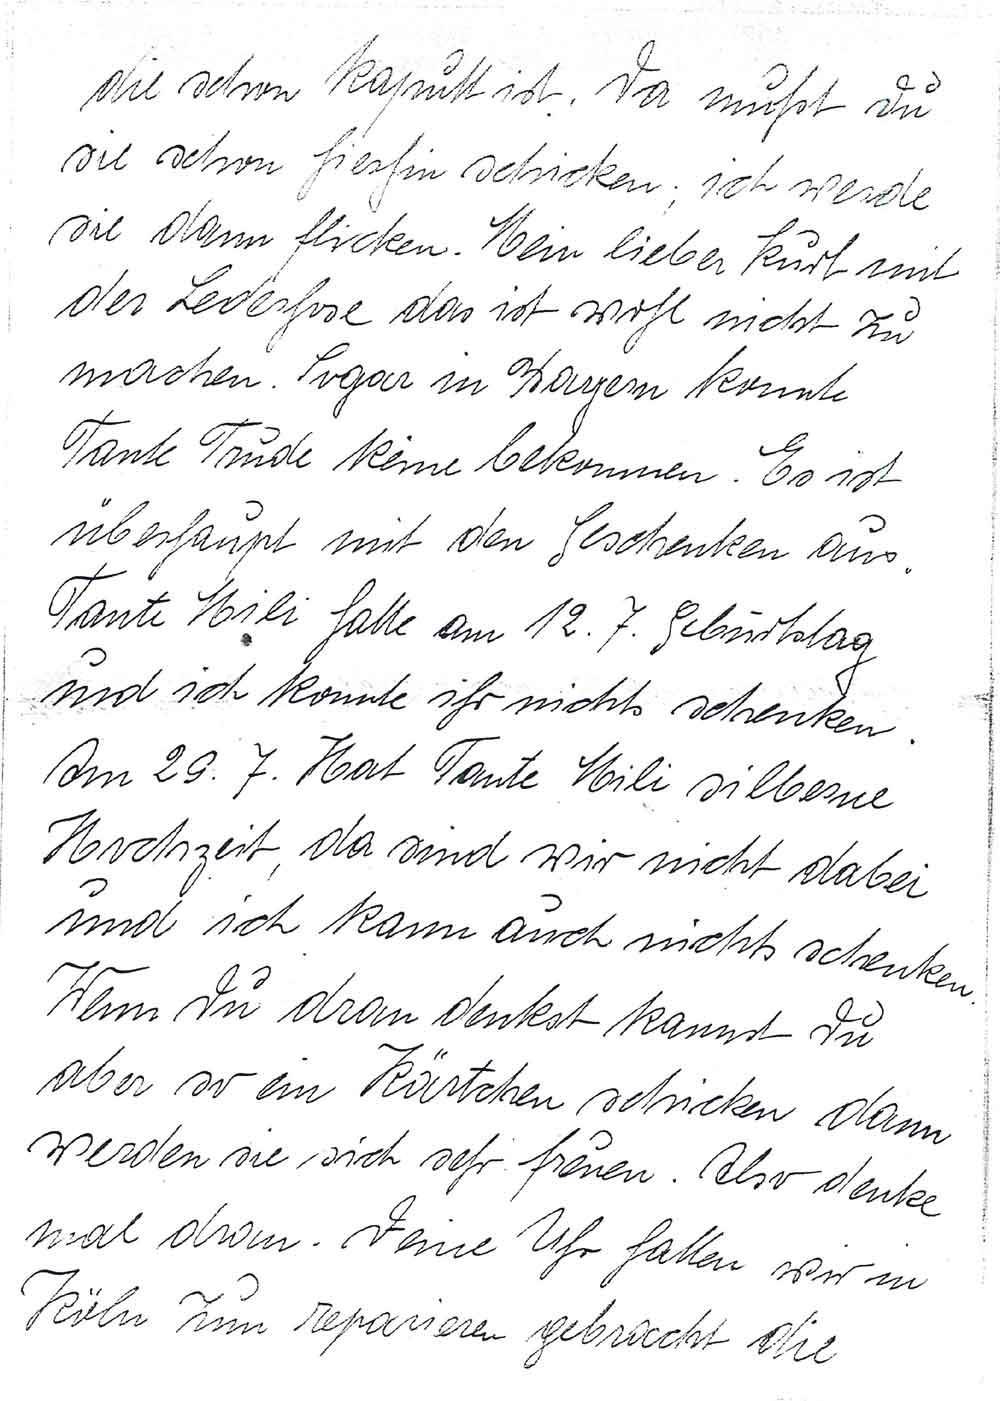 die schon kaputt ist. Da mußt Du
sie schon hierhin schicken, ich werde
sie dann flicken. Mein lieber Kurt mit
der Lederhose das ist wohl nicht zu
machen. Sogar in Bayern konnte
Tante Trude keine bekommen. Es ist
überhaupt mit den Geschenken aus.
Tante Mili hatte am 12. 7. Geburtstag
und ich konnte ihr nichts schenken.
Am 29. 7. Hat Tante Mili silberne
Hochzeit, da sind wir nicht dabei
und ich kann auch nichts schenken.
Wenn Du dran denkst kannst Du
aber so ein Kärtchen schicken dann
werden sie sich sehr freuen. Also denke
mal dran. Deine Uhr hatten wir in
Köln zum reparieren gebracht die